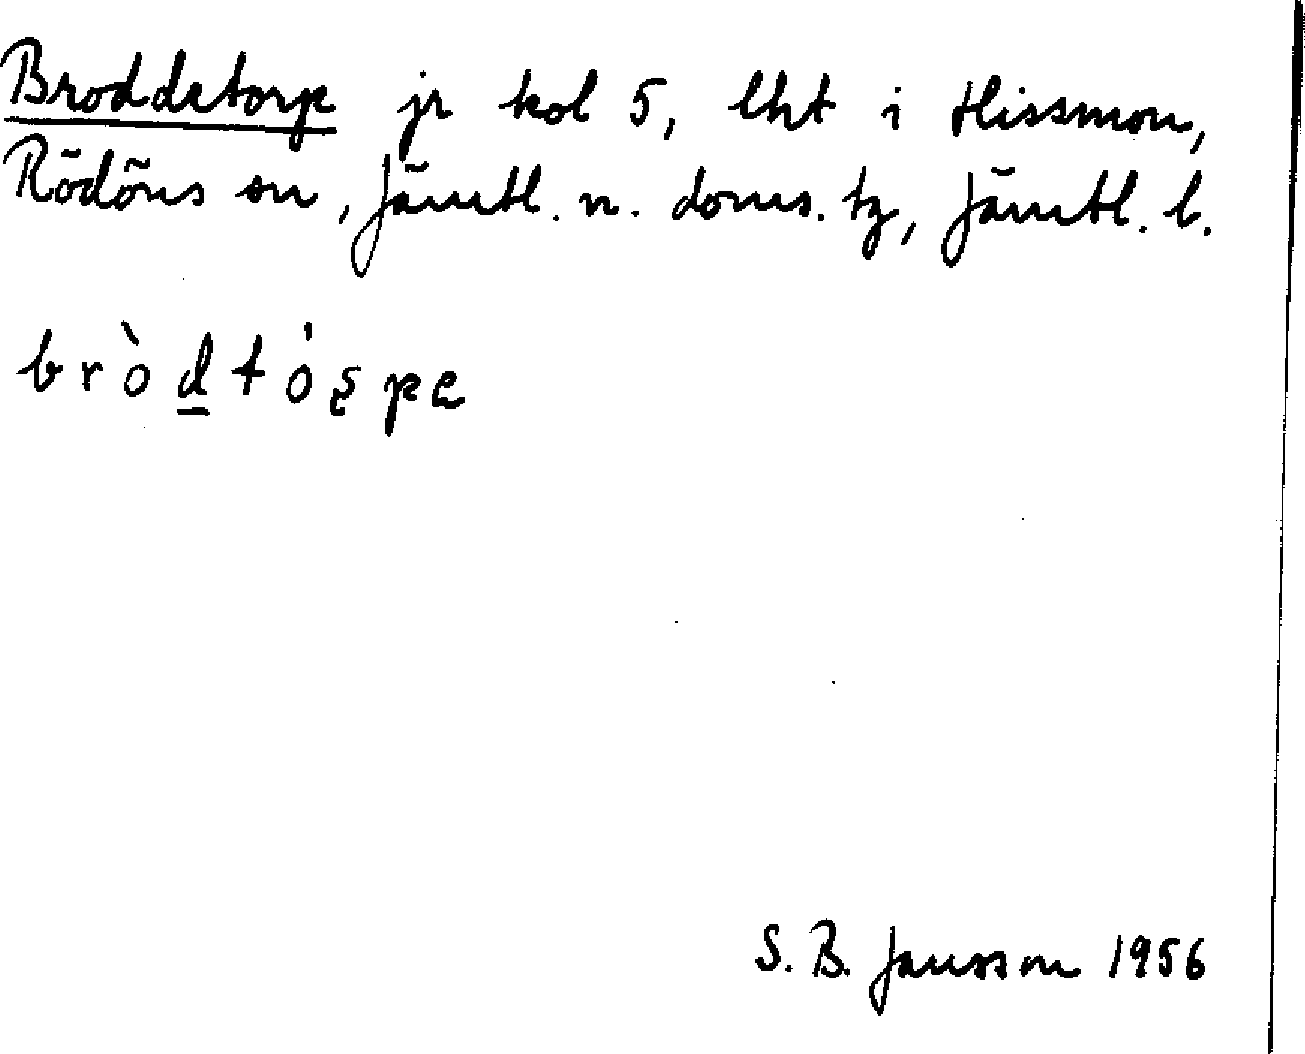 Broddetorp jr kol 5, lht i Hissmon,
Rödöns sn, Jämtl. n. doms. tg, Jämtl. l.
bròd̲tó
S. B. Jansson 1956